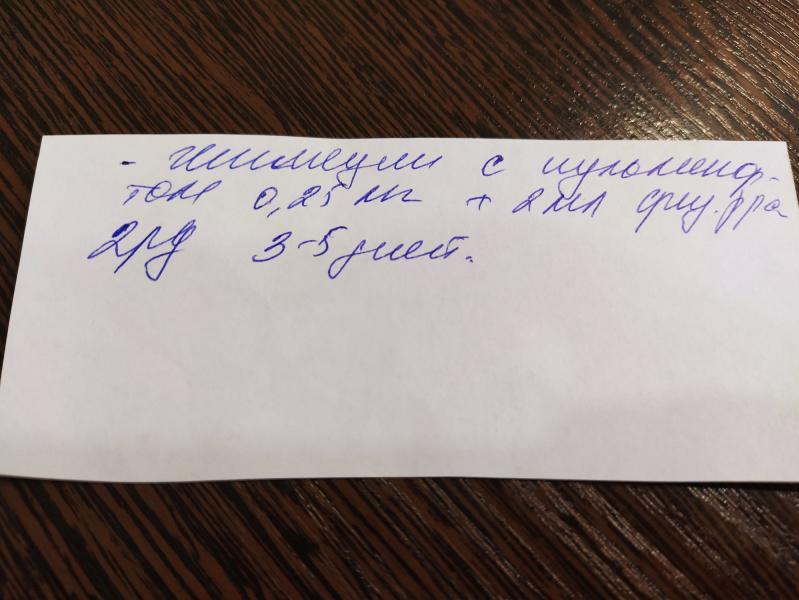 - Ингаляции с пульмикор-
том 0,25 мг + 2 мл физ. р-ра
2 р/д 3-5 дней.